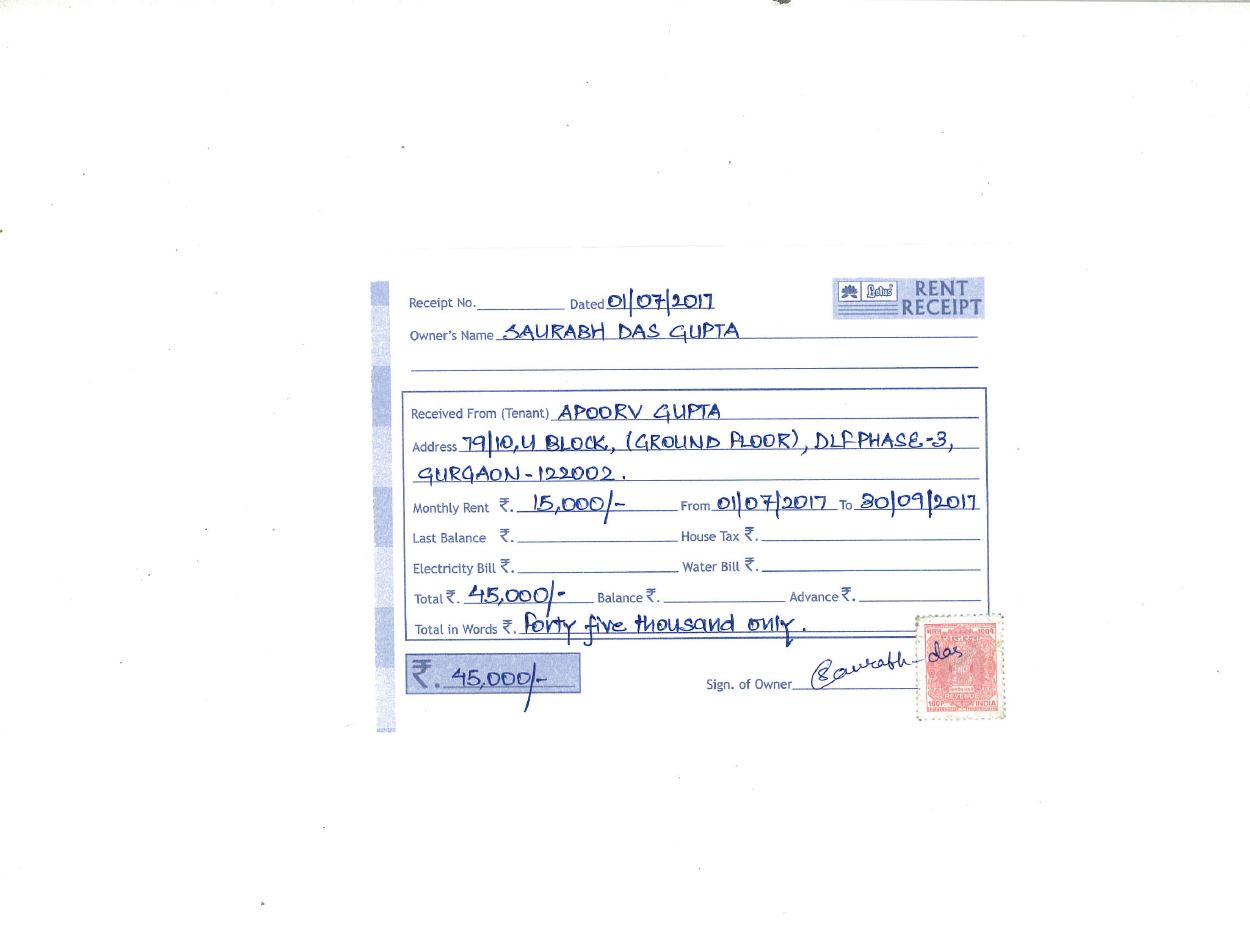 Receipt No. Dated 01/07/2017
Lotus RENT RECEIPT
Owner's Name SAURABH DAS GUPTA
Received From (Tenant) APOORV GUPTA
Address 79/10, U BLOCK, (GROUND FLOOR), DLF PHASE-3,
GURGAON-122002.
Monthly Rent ₹. 15,000/- From 01/07/2017 To 30/09/2017
Last Balance ₹. House Tax ₹.
Electricity Bill ₹. Water Bill ₹.
Total ₹. 45,000/- Balance ₹. Advance ₹.
Total in Words ₹. Forty five thousand only.
₹. 45,000/-
Sign. of Owner Saurabh das
भारत
REVENUE
100P INDIA